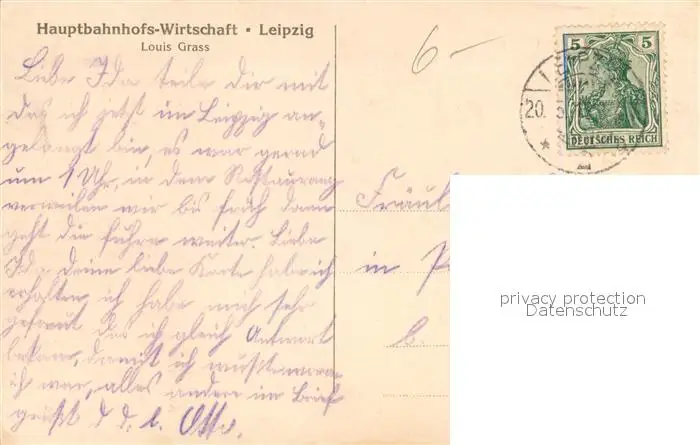 Hauptbahnhofs-Wirtschaft • Leipzig
Louis Grass
6-
5 5
20. 5
DEUTSCHES REICH
Liebe Ida teile dir mit
das ich jetzt im Leipzig an-
gelangt bin, es war gerad
um 1 Uhr, in dem Restaurang
verweilen wir bis früh dann
geht die führe weiter. Liebe
Ida deine liebe Karte hab ich
erhalten ich habe mich sehr
gefreut das ich gleich Antwort
bekam, damit ich wuste
ich war, alles andere im Brief
grüßt d. d. l. Otto.
Fräul
in P
b.
privacy protection
Datenschutz